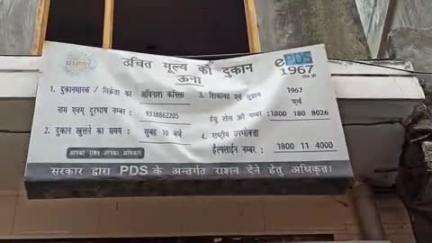 उचित मूल्य की दुकान
ऊना
ePDS
1967
1. दुकानधारक / विक्रेता का
नाम एवम् दूरभाष नम्बर : 9338862205
2. दुकान खुलने का समय : सुबह 10 बजे
3. शिकायत एवं सुझाव 1967
हेतु टोल फ्री नम्बर : 1800 180 8026
4. राष्ट्रीय उपभोक्ता
हैल्पलाईन नम्बर : 1800 11 4000
आपका राशन आपका अधिकार
सरकार द्वारा PDS के अन्तर्गत राशन देने हेतु अधिकृत।